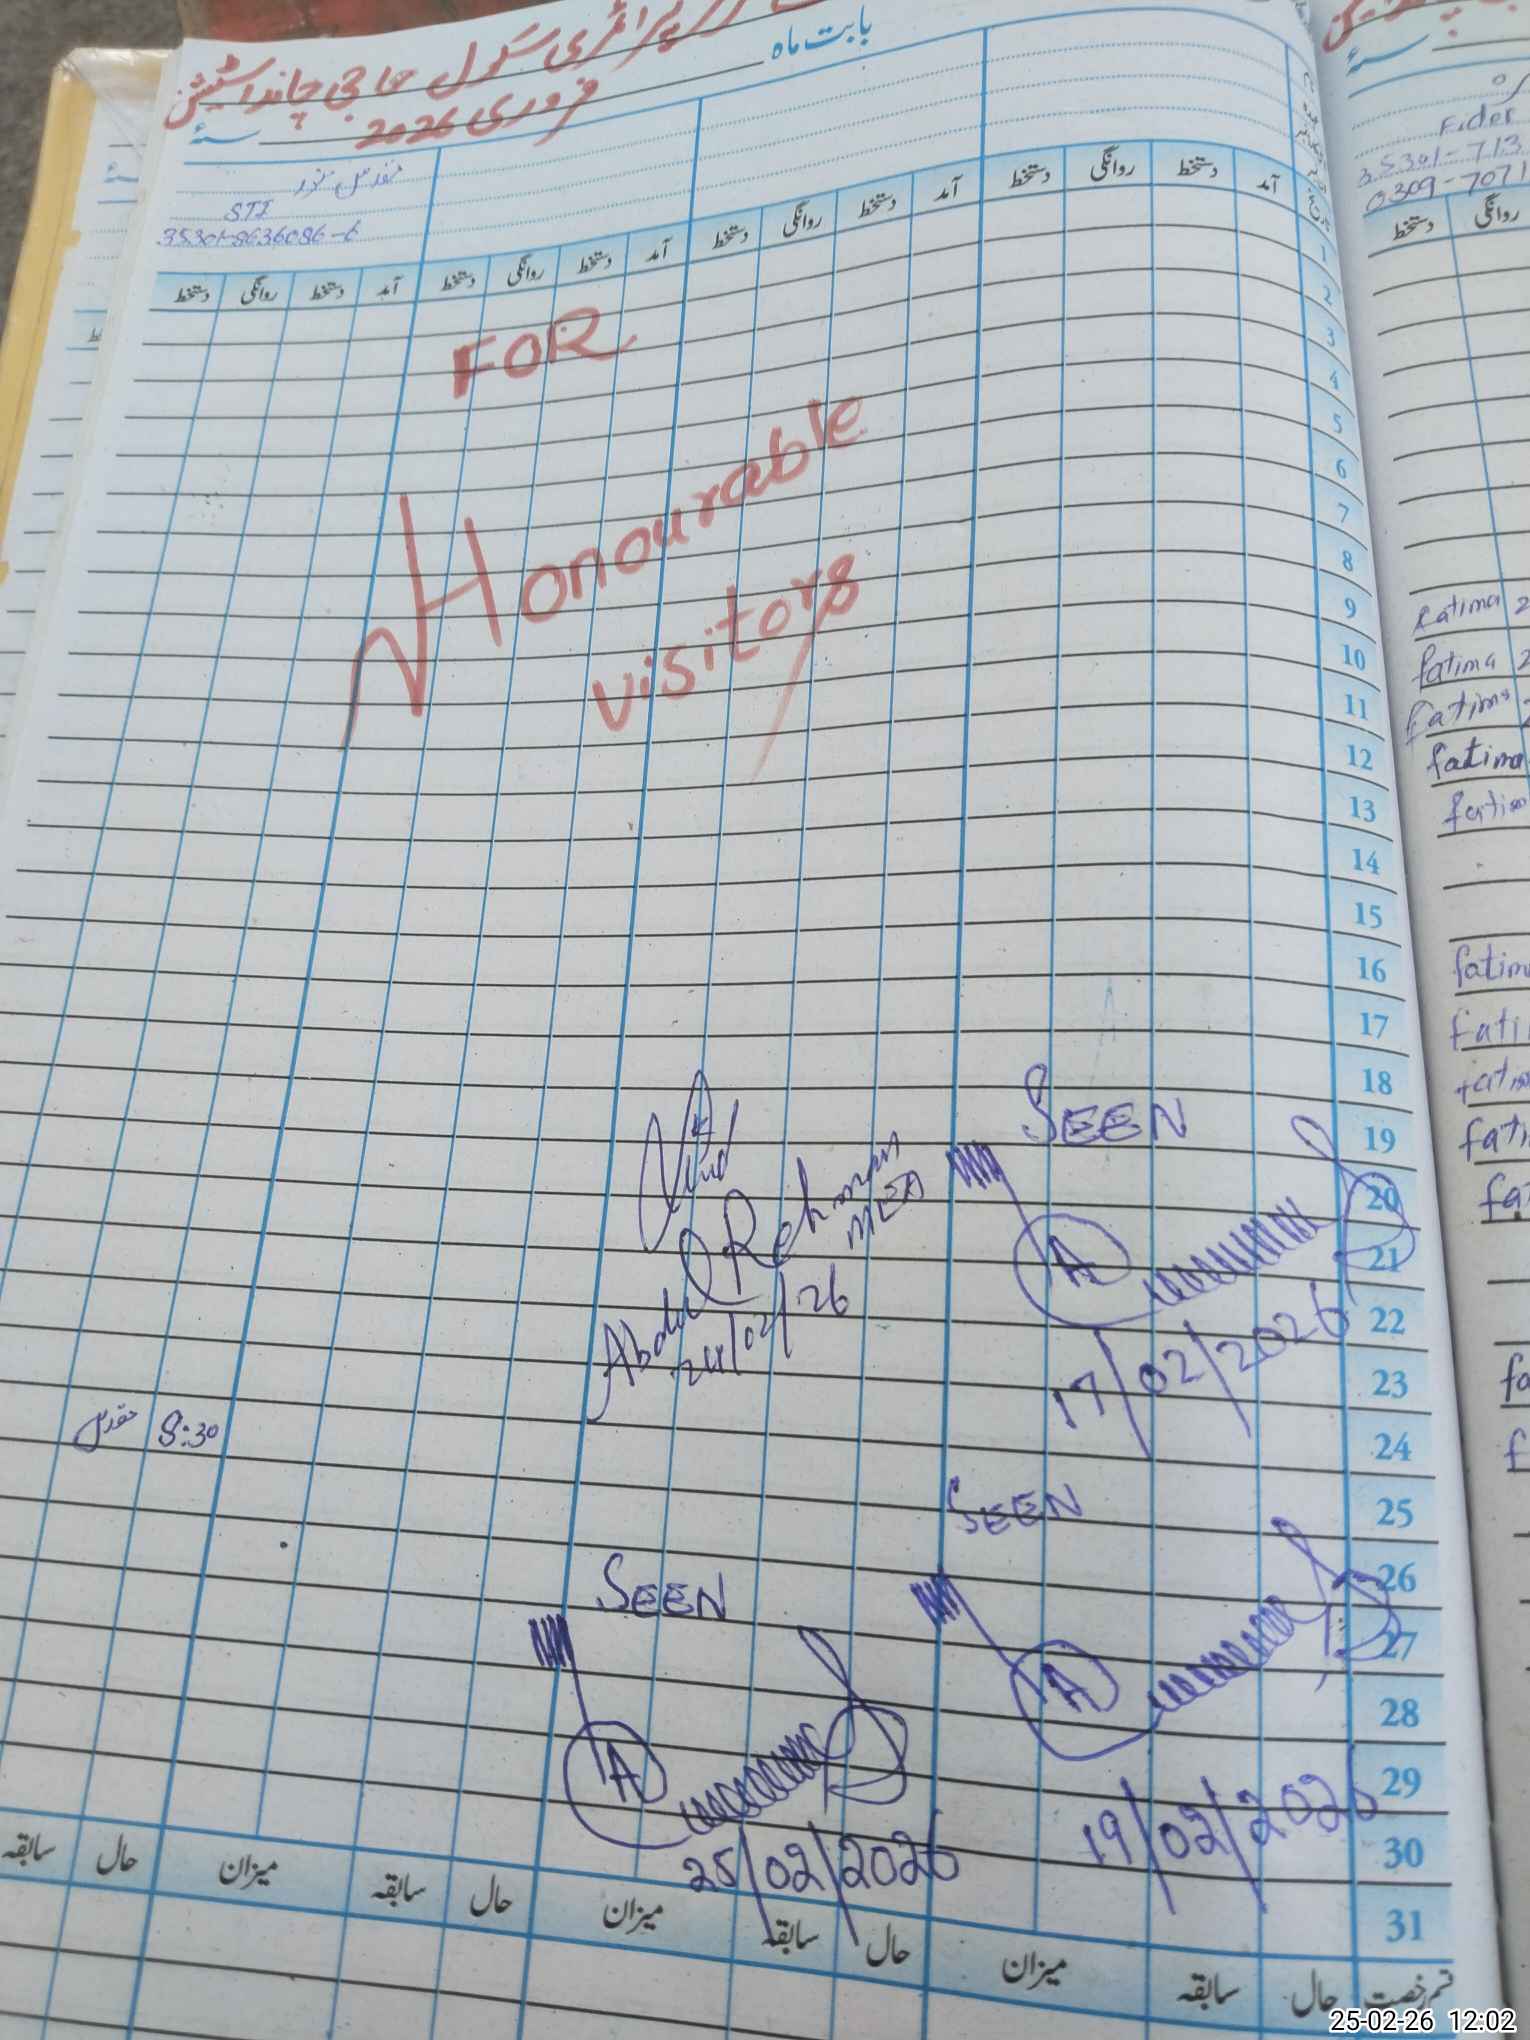 پرائمری سکول حاجی چاندا سٹیشن
بابت ماہ
فروری 2026
سنہ
مقدس نور
STI
35301-8636086-6
آمد دستخط روانگی دستخط آمد دستخط روانگی دستخط آمد دستخط روانگی دستخط آمد دستخط روانگی دستخط
FOR
Honourable
visitors
1
2
3
4
5
6
7
8
9
10
11
12
13
14
15
16
17
18
19
20
21
22
23
24
25
26
27
28
29
30
31
SEEN
A
17/02/2026
Abdul Rehman
MEA
24/02/26
8:30 مقدس
SEEN
A
19/02/2026
SEEN
A
25/02/2026
قسم رخصت حال سابقہ میزان حال سابقہ میزان حال سابقہ میزان حال سابقہ
سنہ
Fider
35301-713
0309-7071
روانگی دستخط
fatima 2
fatima 2
Fatima
fatima
fatima
fatim
fati
fatim
fati
fa
fa
f
25-02-26 12:02